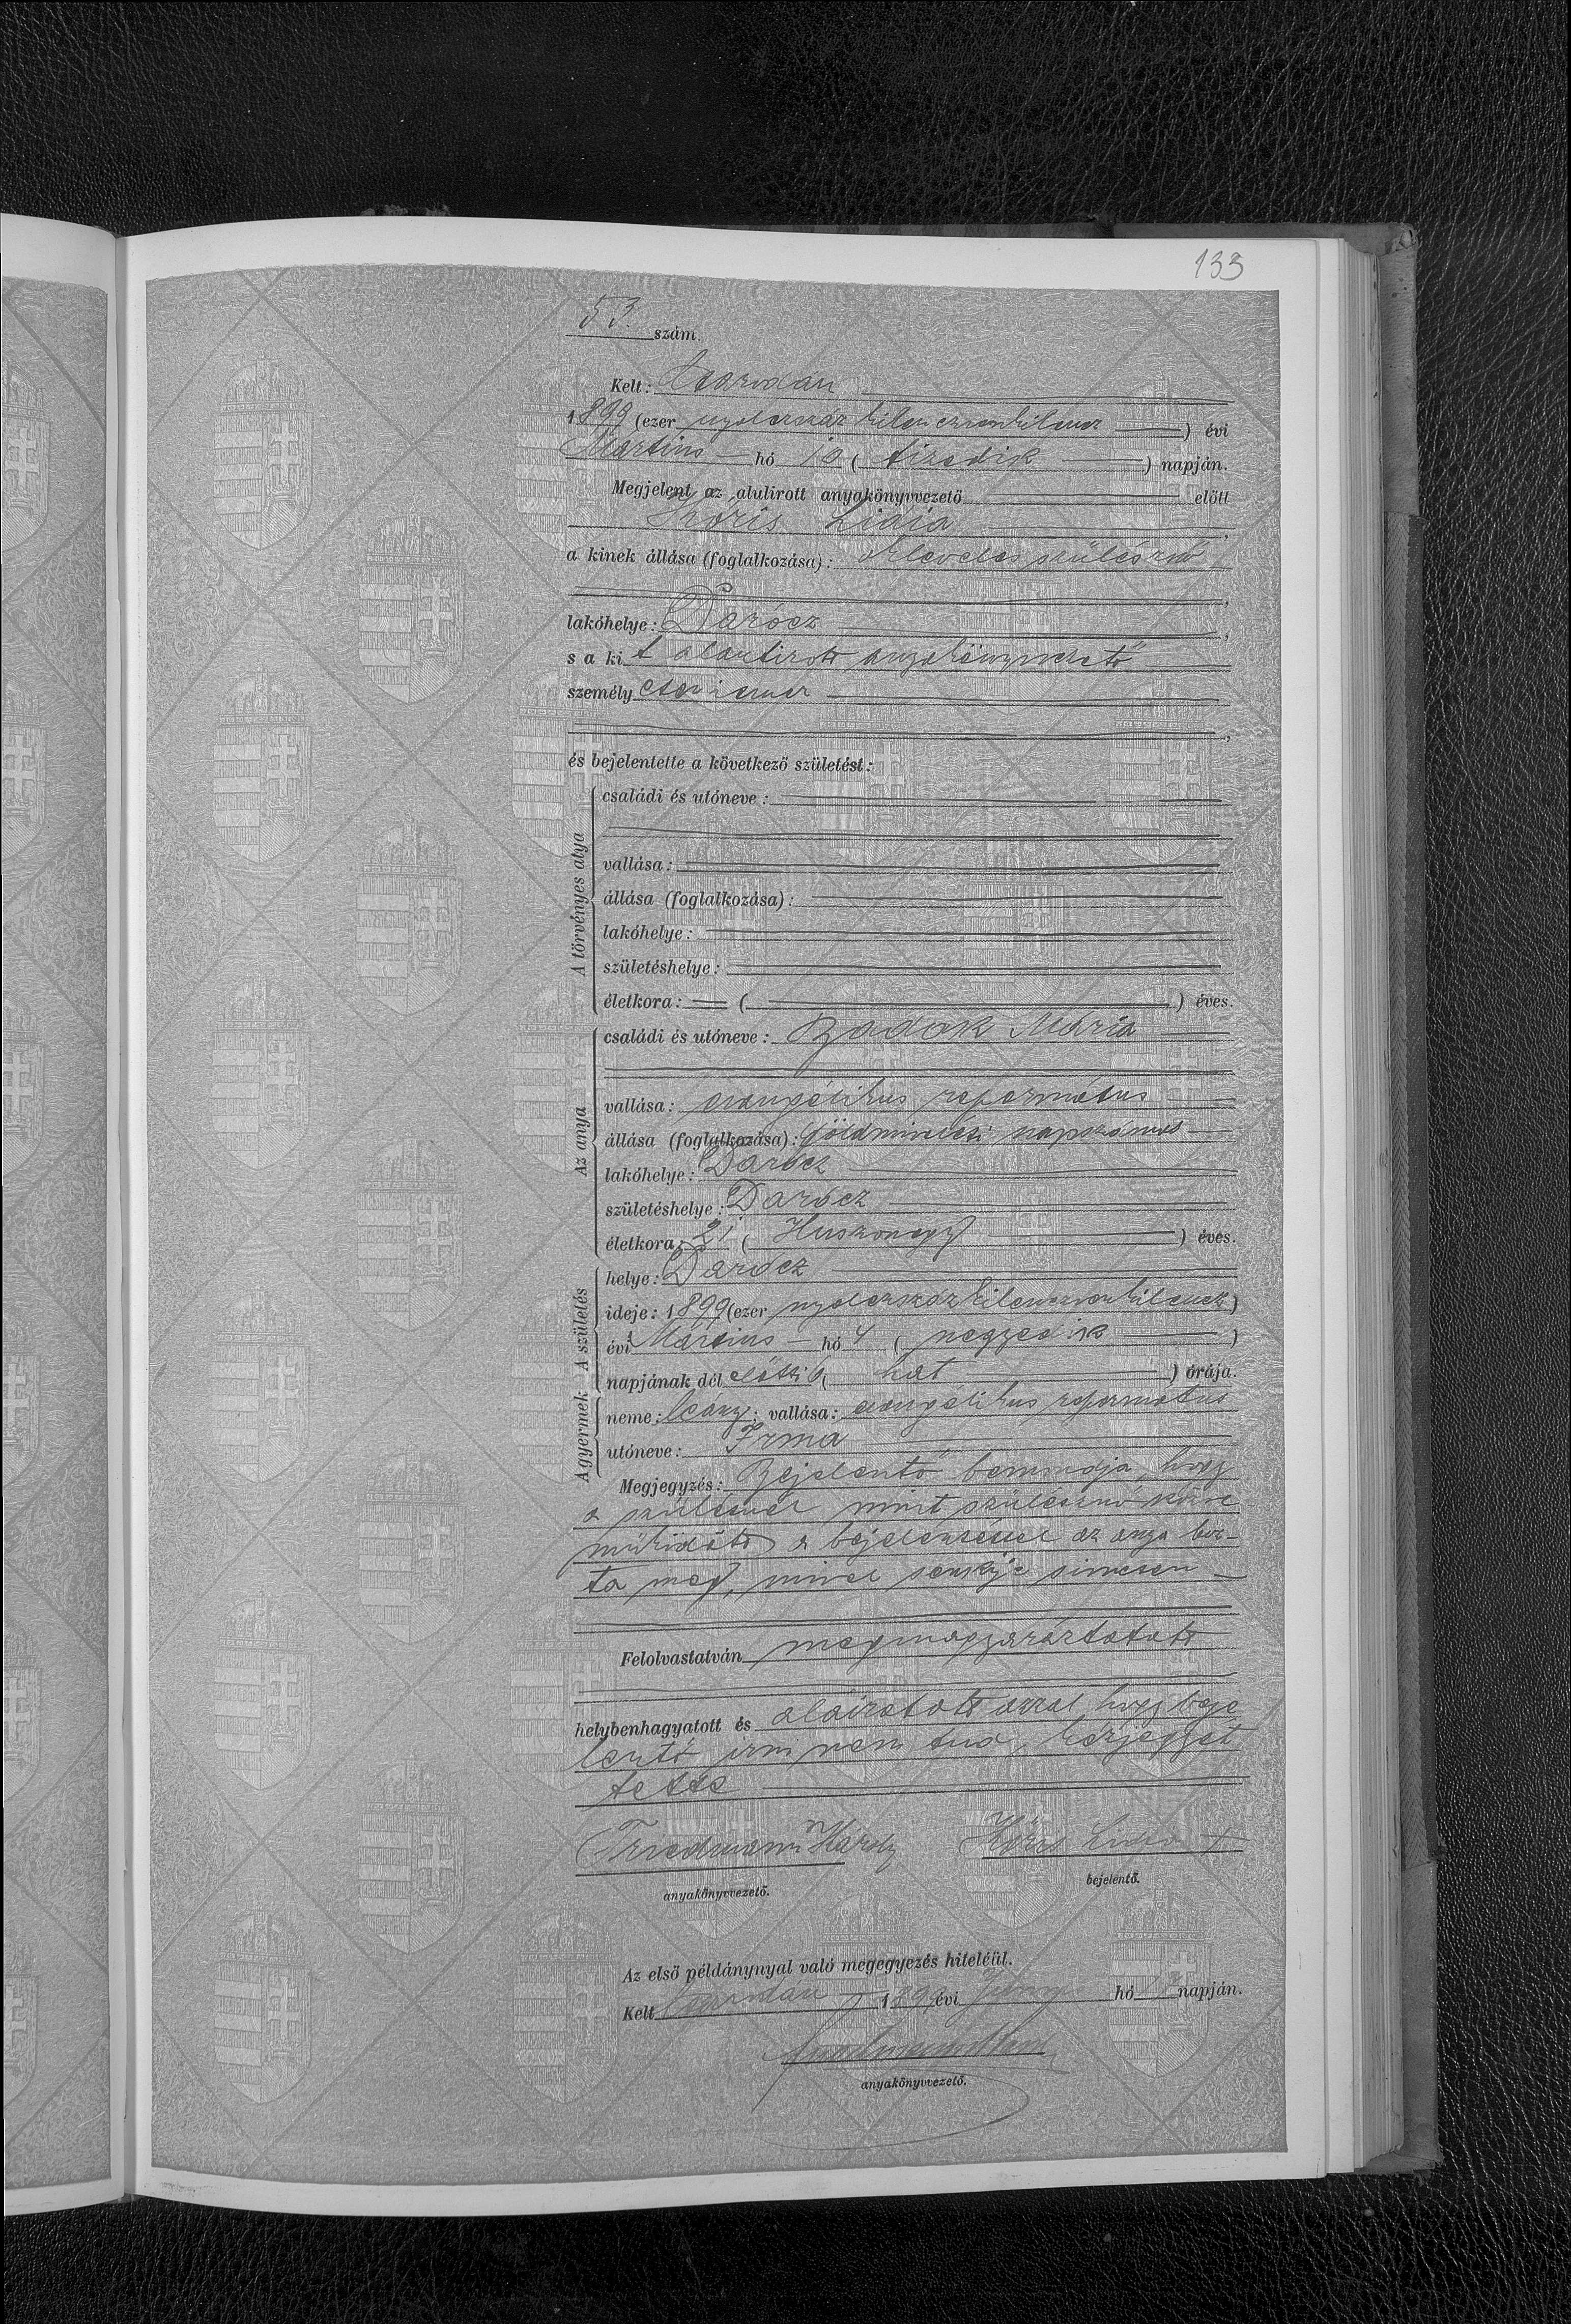 133
53. szám.
Kelt: Csarodán
1899 (ezer nyolczszáz kilenczvenkilencz) évi
Mártius hó 10 (tizedik) napján.
Megjelent az alulirott anyakönyvvezető előtt
Kóris Lidia,
a kinek állása (foglalkozása): okleveles szülésznő
lakóhelye: Darócz,
s a kit alantirott anyakönyvvezető
személyesen ismer
és bejelentette a következő születést:
A törvényes atya
családi és utóneve:
vallása:
állása (foglalkozása):
lakóhelye:
születéshelye:
életkora: ( ) éves.
Az anya
családi és utóneve: Badak Mária
vallása: evangélikus református
állása (foglalkozása): földmivelési napszámos
lakóhelye: Darócz
születéshelye: Darócz
életkora: 21 (Huszonegy) éves.
A születés
helye: Darócz
ideje: 1899 (ezer nyolczszázkilenczvenkilencz)
évi Március hó 4 (negyedik)
napjának dél előtti 6 (hat) órája.
A gyermek
neme: leány; vallása: evangélikus református
utóneve: Irma
Megjegyzés: Bejelentő bemondja, hogy
a szülésnél mint szülésznő közre
működött s a bejelentéssel az anya biz-
ta meg, mivel senkije sincsen
Felolvastatván megmagyaráztatott
helybenhagyatott és aláiratott azzal, hogy beje
lentő irni nem tud, kézjegyet
tette
Friedmann Károly Kóris Lidia +
anyakönyvvezető. bejelentő.
Az első példánynyal való megegyezés hiteléül.
Kelt Csarodán 1899 évi hó napján.
anyakönyvvezető.